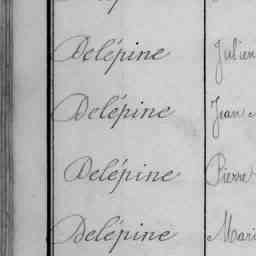 Delépine Julien
Delépine Jean
Delépine Pierre
Delépine Mari